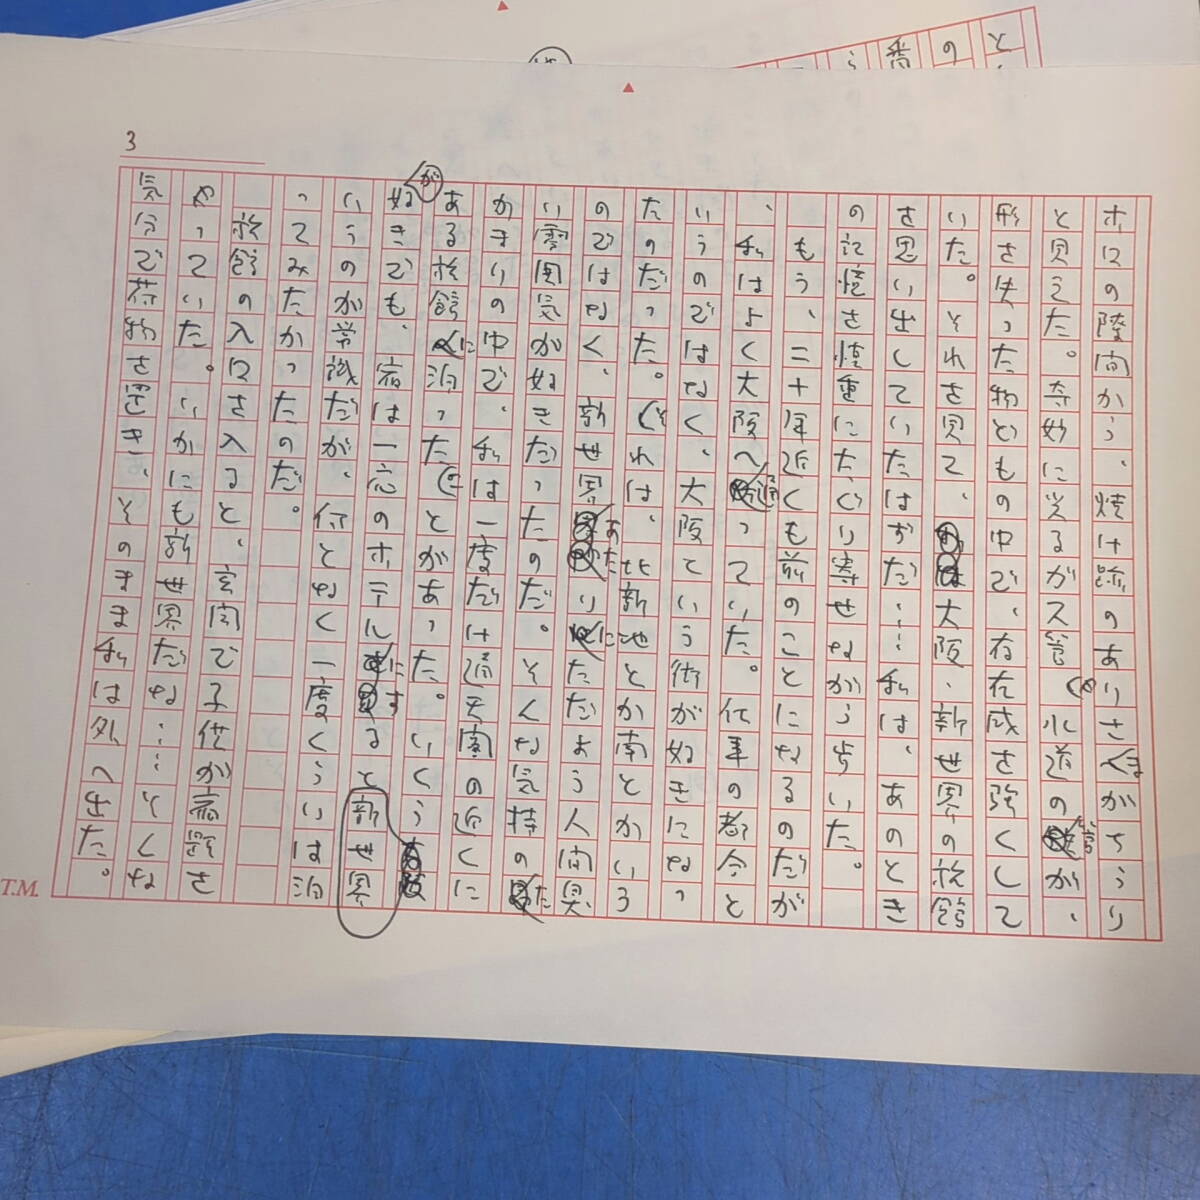 3
ホームの隙間から、焼け跡のありさまがちらり
と見えた。奇妙に光るガス管や水道の管が、
形を失った物どもの中で、存在感を強くして
いた。それを見て、大阪、新世界の旅館
を思い出していたはずだ……私は、あのとき
の記憶を慎重にたぐり寄せながら歩いた。
もう、二十年近くも前のことになるのだが
、私はよく大阪へ通っていた。仕事の都合と
いうのではなく、大阪という街が好きになっ
たのだった。それは、北新地とか南とかいろ
のではなく、新世界あたりにただよう人間臭
い雰囲気が好きだったのだ。そんな気持のた
かまりの中で、私は一度だけ通天閣の近くに
ある旅館に泊ったことがあった。いくら
が好きでも、宿は一応のホテルにすると新世界
いうのが常識だが、何となく一度くらいは泊
ってみたかったのだ。
旅館の入口を入ると、玄関で子供が宿題を
やっていた。いかにも新世界だな……そんな
気分で荷物を置き、そのまま私は外へ出た。
T.M.